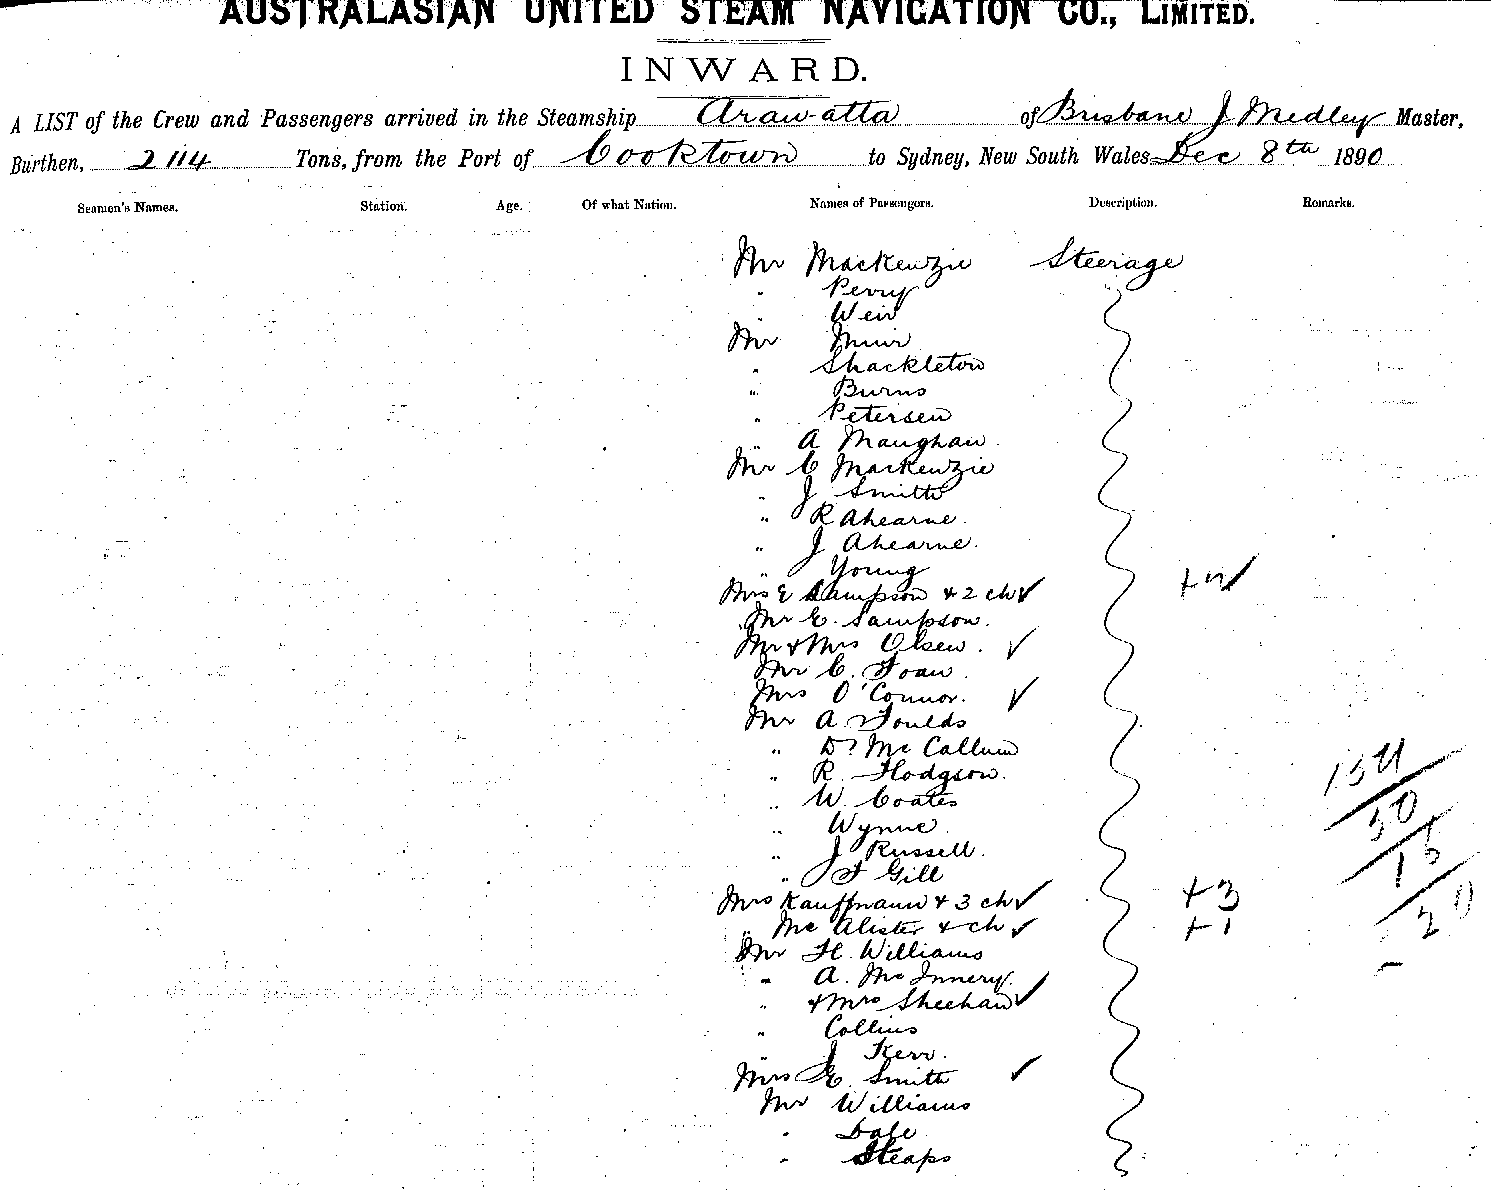 AUSTRALASIAN UNITED STEAM NAVIGATION CO., LIMITED.
INWARD.
A LIST of the Crew and Passengers arrived in the Steamship Arawatta of Brisbane J Medley Master,
Burthen, 2114 Tons, from the Port of Cooktown to Sydney, New South Wales Dec 8th 1890
Seamen's Names. Station. Age. Of what Nation. Names of Passengers. Description. Remarks.
Mr Mackenzie Steerage
" Perry
" Weir
Mr Muir
" Shackleton
" Burns
" Petersen
" A Maughan
Mr C Mackenzie
" J Smith
" R Ahearne
" J Ahearne
" Young
Mrs E Sampson + 2 ch ✓ + 2 ✓
Mr E. Sampson
Mr + Mrs Olsen ✓
Mr C.
Mrs O'Connor ✓
Mr A Foulds
" D. McCallum
" R. Hodgson
" W. Coates
" Wynne
" J Russell
" F Gill
Mrs Kauffmann + 3 ch ✓ + 3
" McAlister + ch ✓ + 1
Mr H. Williams
" A. McInnery
" + Mrs Sheehan ✓
" Collins
" J Kerr
Mrs E. Smith ✓
Mr Williams
" Dale
" Steaps
154
50
15
20